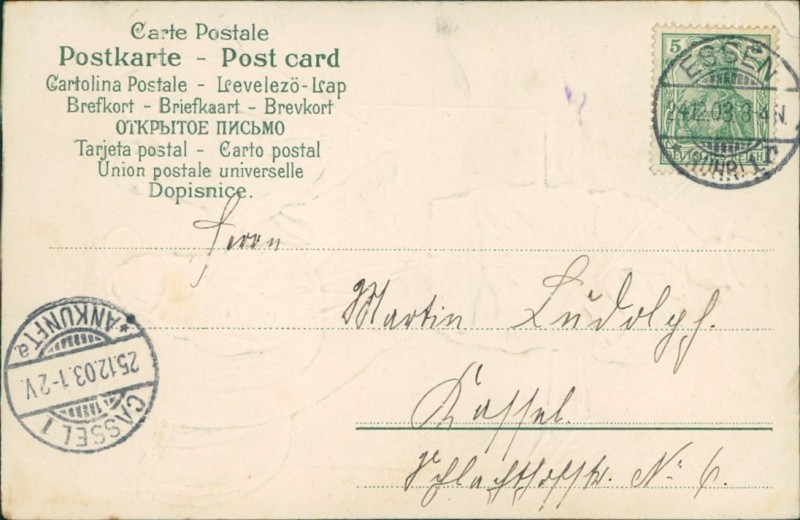 Carte Postale
Postkarte - Post card
Cartolina Postale - Levelezö-Lap
Brefkort - Briefkaart - Brevkort
ОТКРЫТОЕ ПИСЬМО
Tarjeta postal - Carto postal
Union postale universelle
Dopisnice.
5
DEUTSCHES REICH
ESSEN
24.12.03.3-4N.
* (RUHR) 1 c
Herrn
Martin Ludolph.
Kassel.
Schlachthofstr. No 6.
* ANKUNFT * a
25.12.03.1-2V.
CASSEL 1